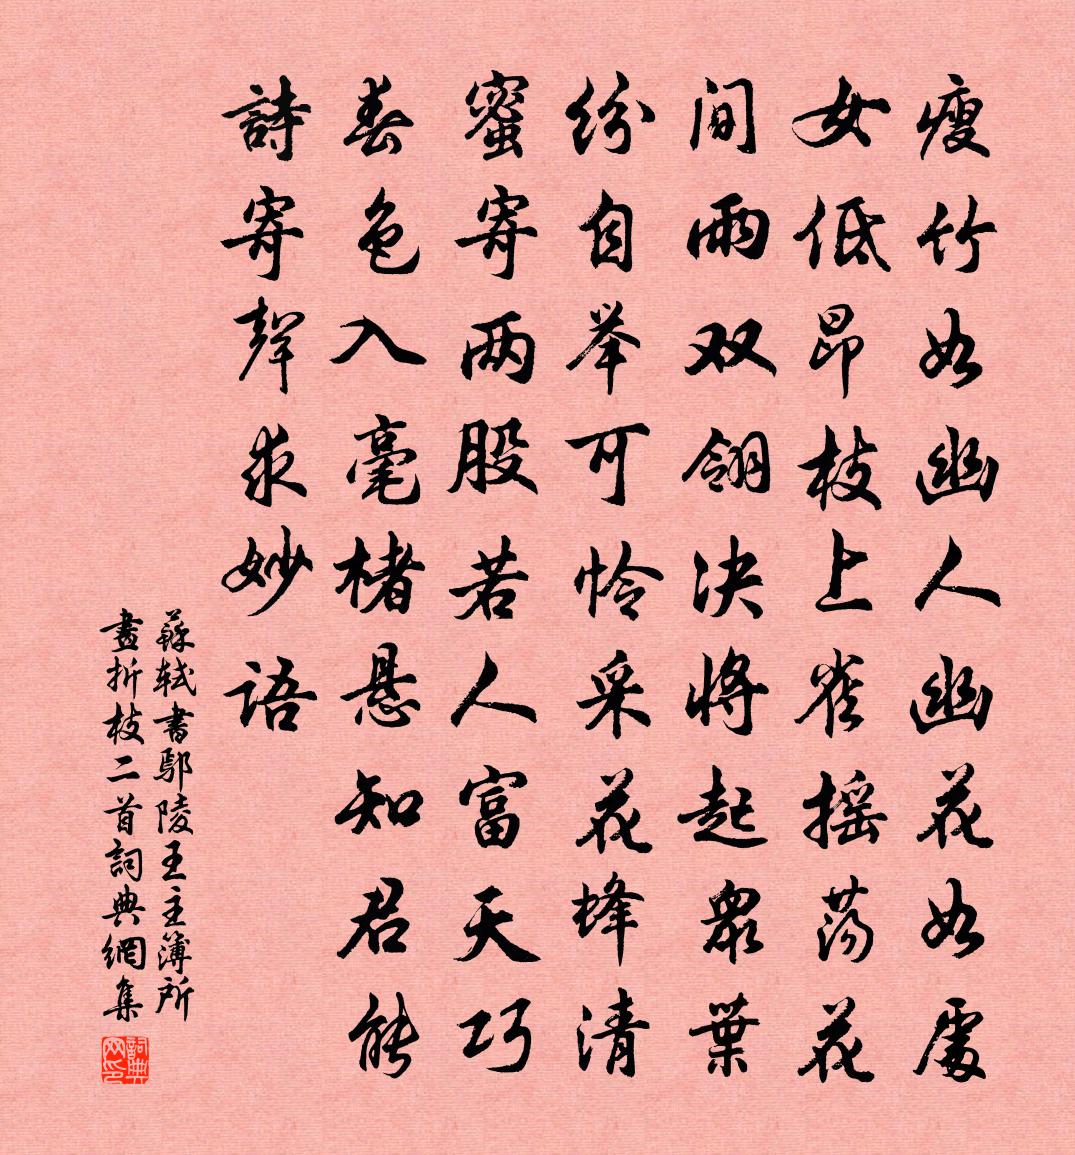 瘦竹如幽人幽花如處
女低昂枝上雀摇荡花
间雨双翎决將起眾葉
纷自举可怜采花蜂清
蜜寄两股若人富天巧
春色入毫楮悬知君能
詩寄聲求妙語
蘇軾書鄢陵王主簿所
畫折枝二首詞典網集
詞典网印